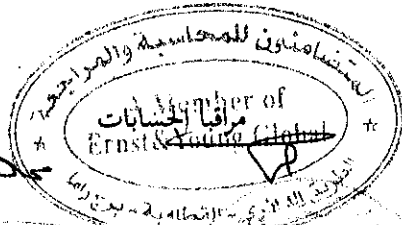 المتضامنون للمحاسبة والمراجعة
A Member of
مراقبا الحسابات
Ernst & Young Global